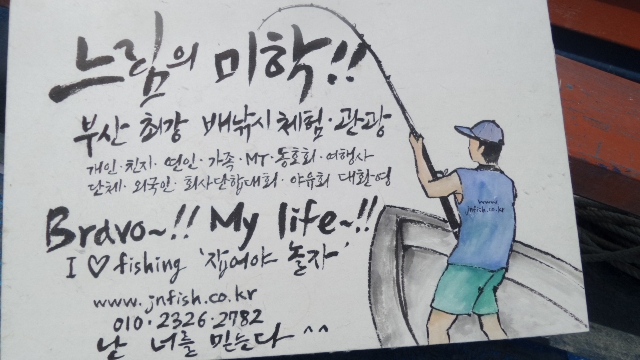 느림의 미학!!
부산 최강 배낚시 체험·관광
개인·친지·연인·가족·MT·동호회·여행사
단체·외국인·회사단합대회·야유회 대환영
Bravo~!! My life~!!
I ♡ fishing '잡어야 놀자'
www.jnfish.co.kr
010·2326·2782
난 너를 믿는다 ^^
www
jnfish.co.kr